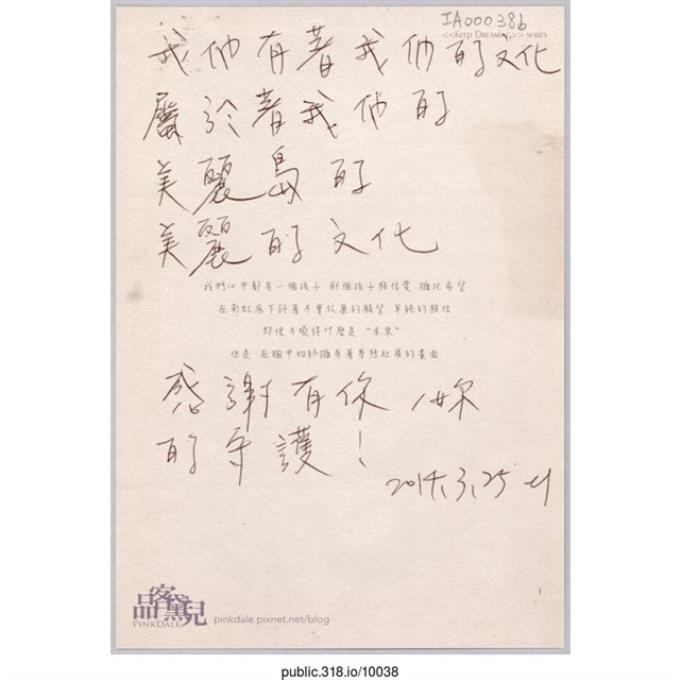 IA000386
<<KEEP DREAMING>> SERIES
我他有著我他的文化
屬於著我他的
美麗島的
美麗的文化
我們心中都有一個孩子 那個孩子相信愛 擁抱希望
在彩虹底下許著不會放棄的願望 單純的相信
即使不曉得什麼是 "未來"
但是 在腦中始終擁有著夢想起飛的畫面
感謝有你 妳
的守護！
2014.3.25
品客黛兒
PINKDALE
pinkdale.pixnet.net/blog
public.318.io/10038